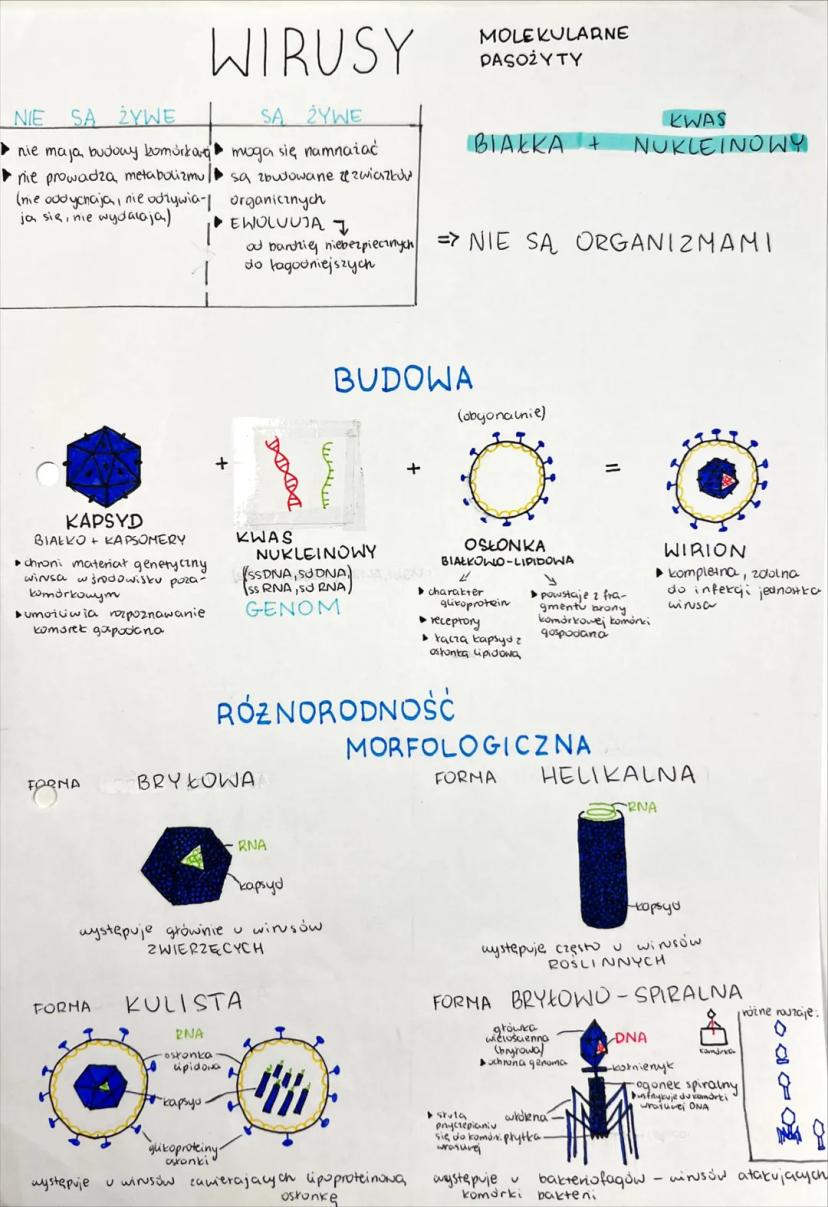 WIRUSY
MOLEKULARNE
PASOŻYTY
NIE SĄ ŻYWE
▶ nie mają budowy komórkowej
▶ nie prowadzą metabolizmu
(nie oddychają, nie odżywia-
ją się, nie wydalają)
SĄ ŻYWE
▶ mogą się namnażać
▶ są zbudowane ze związków
organicznych
▶ EWOLUUJĄ
od bardziej niebezpiecznych
do łagodniejszych
KWAS
BIAŁKA + NUKLEINOWY
=> NIE SĄ ORGANIZMAMI
BUDOWA
KAPSYD
BIAŁKO + KAPSOMERY
▶ chroni materiał genetyczny
wirusa w środowisku poza-
komórkowym
▶ umożliwia rozpoznawanie
komórek gospodarza
+
KWAS
NUKLEINOWY
(ssDNA, sdDNA,
ssRNA, sdRNA)
GENOM
+
(opcjonalnie)
OSŁONKA
BIAŁKOWO-LIPIDOWA
▶ charakter
glikoprotein
▶ receptory
▶ łączą kapsyd z
osłonką lipidową
▶ powstaje z fra-
gmentu błony
komórkowej komórki
gospodarza
=
WIRION
▶ kompletna, zdolna
do infekcji jednostka
wirusa
RÓŻNORODNOŚĆ
MORFOLOGICZNA
FORMA BRYŁOWA
RNA
kapsyd
występuje głównie u wirusów
ZWIERZĘCYCH
FORMA HELIKALNA
RNA
kapsyd
występuje często u wirusów
ROŚLINNYCH
FORMA KULISTA
RNA
osłonka
lipidowa
kapsyd
glikoproteiny
osłonki
występuje u wirusów zawierających lipoproteinową
osłonkę
FORMA BRYŁOWO-SPIRALNA
główka
wielościenna
(bryłowa)
▶ ochrona genomu
DNA
kołnierzyk
ogonek spiralny
▶ wstrzykuje do komórki
wirusowej DNA
włókna
▶ służą
przyczepianiu
się do komórki
płytka
komórka
różne rodzaje:
występuje u bakteriofagów – wirusów atakujących
komórki bakterii